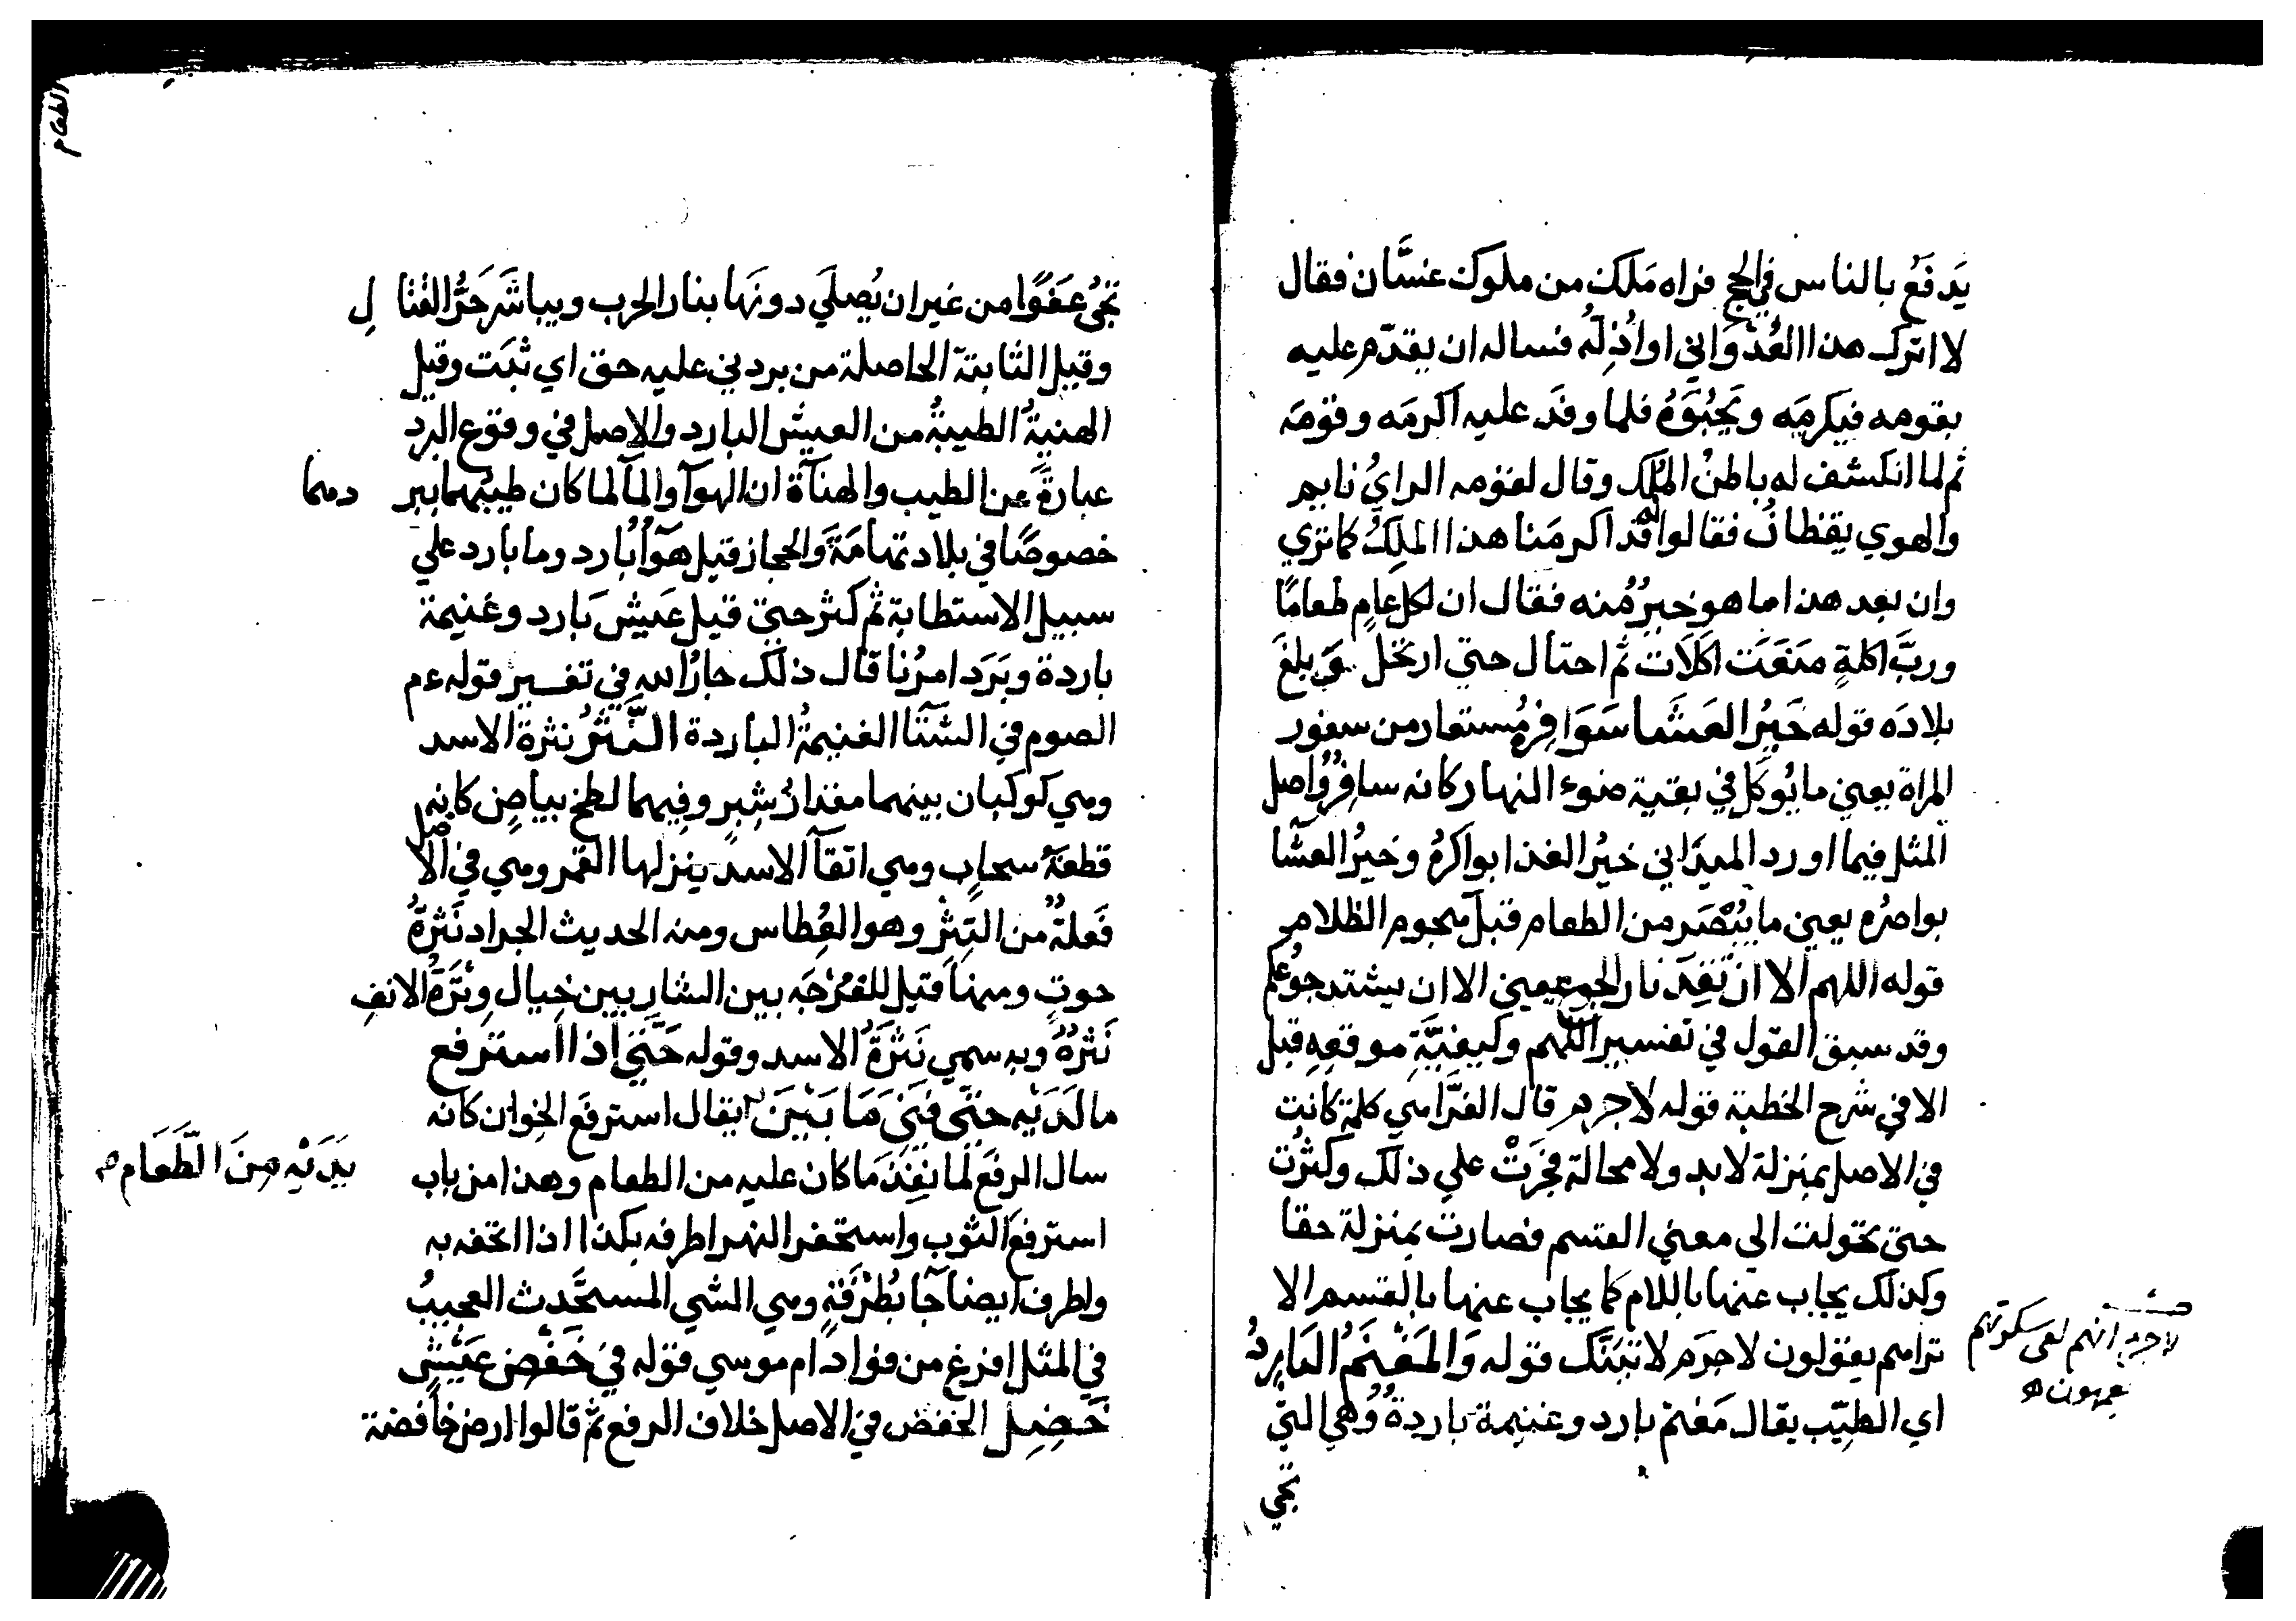 يَدفَعُ بالناس في الحج فراه مَلِك من ملوك غسَّان فقال
لا اترك هذا العُدْوَاني او اُذِلَّهُ فساله ان يقدّم عليه
بقومه فيكرمَه ويَحْبُوَهُ فلما وفدَ عليه اكرمَه وقومَه
ثم لما انكشف له باطنُ الملِك وقال لقومه الرايُ نايم
والهوي يقظانُ فقالوا له قد اكرمَنا هذا الملِكُ كما تري
وان بعد هذا ما هو خيرٌ منه فقال ان لكل عامٍ طعامًا
وربَّ اكلةٍ منَعَت اكلَات ثم احتال حتي ارتحل وبلغَ
بلادَه قوله خَيرُ العَشَا سَوَافِرُه مُستعار من سفور
المراة يعني ما يُوكَل في بقية ضوء النهار كانه سافرٌ واصل
المثل فيما اورد الميدَاني خيرُ الغدا بواكرُه وخيرُ العشآ
بواصرُه يعني ما يُبْصَر من الطعام قبل هجوم الظلام
قوله اللهم الا ان تَقِدَ نار الجوع يعني الا ان يشتد جوعُكم
وقد سبق القول في تفسير اللهم وكيفيَّةِ موقعِه قبل
الا في شرح الخطبة قوله لاجرم قال الفرَّا هي كلمة كانت
في الاصل بمنزلة لابد ولا محالة فجَرَتْ علي ذلك وكثُرت
حتي تحولت الي معني القسم فصارت بمنزلة حقا
وكذلك يجاب عنها باللام كما يجاب عنها بالقسم الا
تراهم يقولون لاجرَم لاتينَّك قوله وَالمَغْنَمُ البَارِدُ
اي الطيّب يقال مَغنم بارد وغنيمة باردةٌ وهي التي
تجي
لاجرم انهم لفي سكرتهم
يعمهون
تجيُ عَفوًا من غير ان يُصلَي دونَها بنار الحرب ويباشَر حَرُّ القتال
وقيل الثابتة الحاصلة من برد لي عليه حق اي ثبَت وقيل
الهنيةُ الطيبةُ من العيش البارد والاصل في وقوع البرد
عبارةً عن الطيب والهنآة ان الهوآ والمآ لما كان طيبُهما ببردهما
خصوصًا في بلاد تهامَةَ والحجاز قيل هوآٌ بارد وما بارد علي
سبيل الاستطابة ثم كثر حتي قيل عَيش بَارد وغنيمة
باردة وبَرَد امرُنا قال ذلك جارُ الله في تفسير قوله عم
الصوم في الشتآ الغنيمةُ الباردة النَّثرُ نثرة الاسد
وهي كوكبان بينهما مقدارُ شِبرٍ وفيهما لطخ بياضٍ كانه
قطعةُ سحابٍ وهي انفآ الاسد ينزلها القمر وهي في الاصل
فَعلةٌ من النثر وهو العُطاس ومنه الحديث الجراد نَثرةُ
حوتٍ ومنها قيل للفُرْجَه بين الشاربين حِيال وتَرَةِ الانفِ
نَثرةٌ وبه سمي نَثرَةُ الاسد وقوله حَتّي اِذا استرفع
ما لَدَيْه حتّى فَنَى مَا بَيْنَ يقال استرفَع الخِوان كانه
يَدَيْه مِنَ الطَّعَام
سال الرفعَ لما نَفِدَ مَا كان عليه من الطعام وهذا من باب
استرفع الثوب واستحفر النهر اطرفه بكذا اذا اتحفه به
واطرف ايضا جا بُطرْفَةٍ وهي الشي المستحَدث العجيبُ
في المثل افرغ من فواد ام موسي قوله في خَفْضِ عَيْشٍ
خَضِلٍ الخفض في الاصل خلاف الرفع ثم قالوا ارض خافضة
الطعام